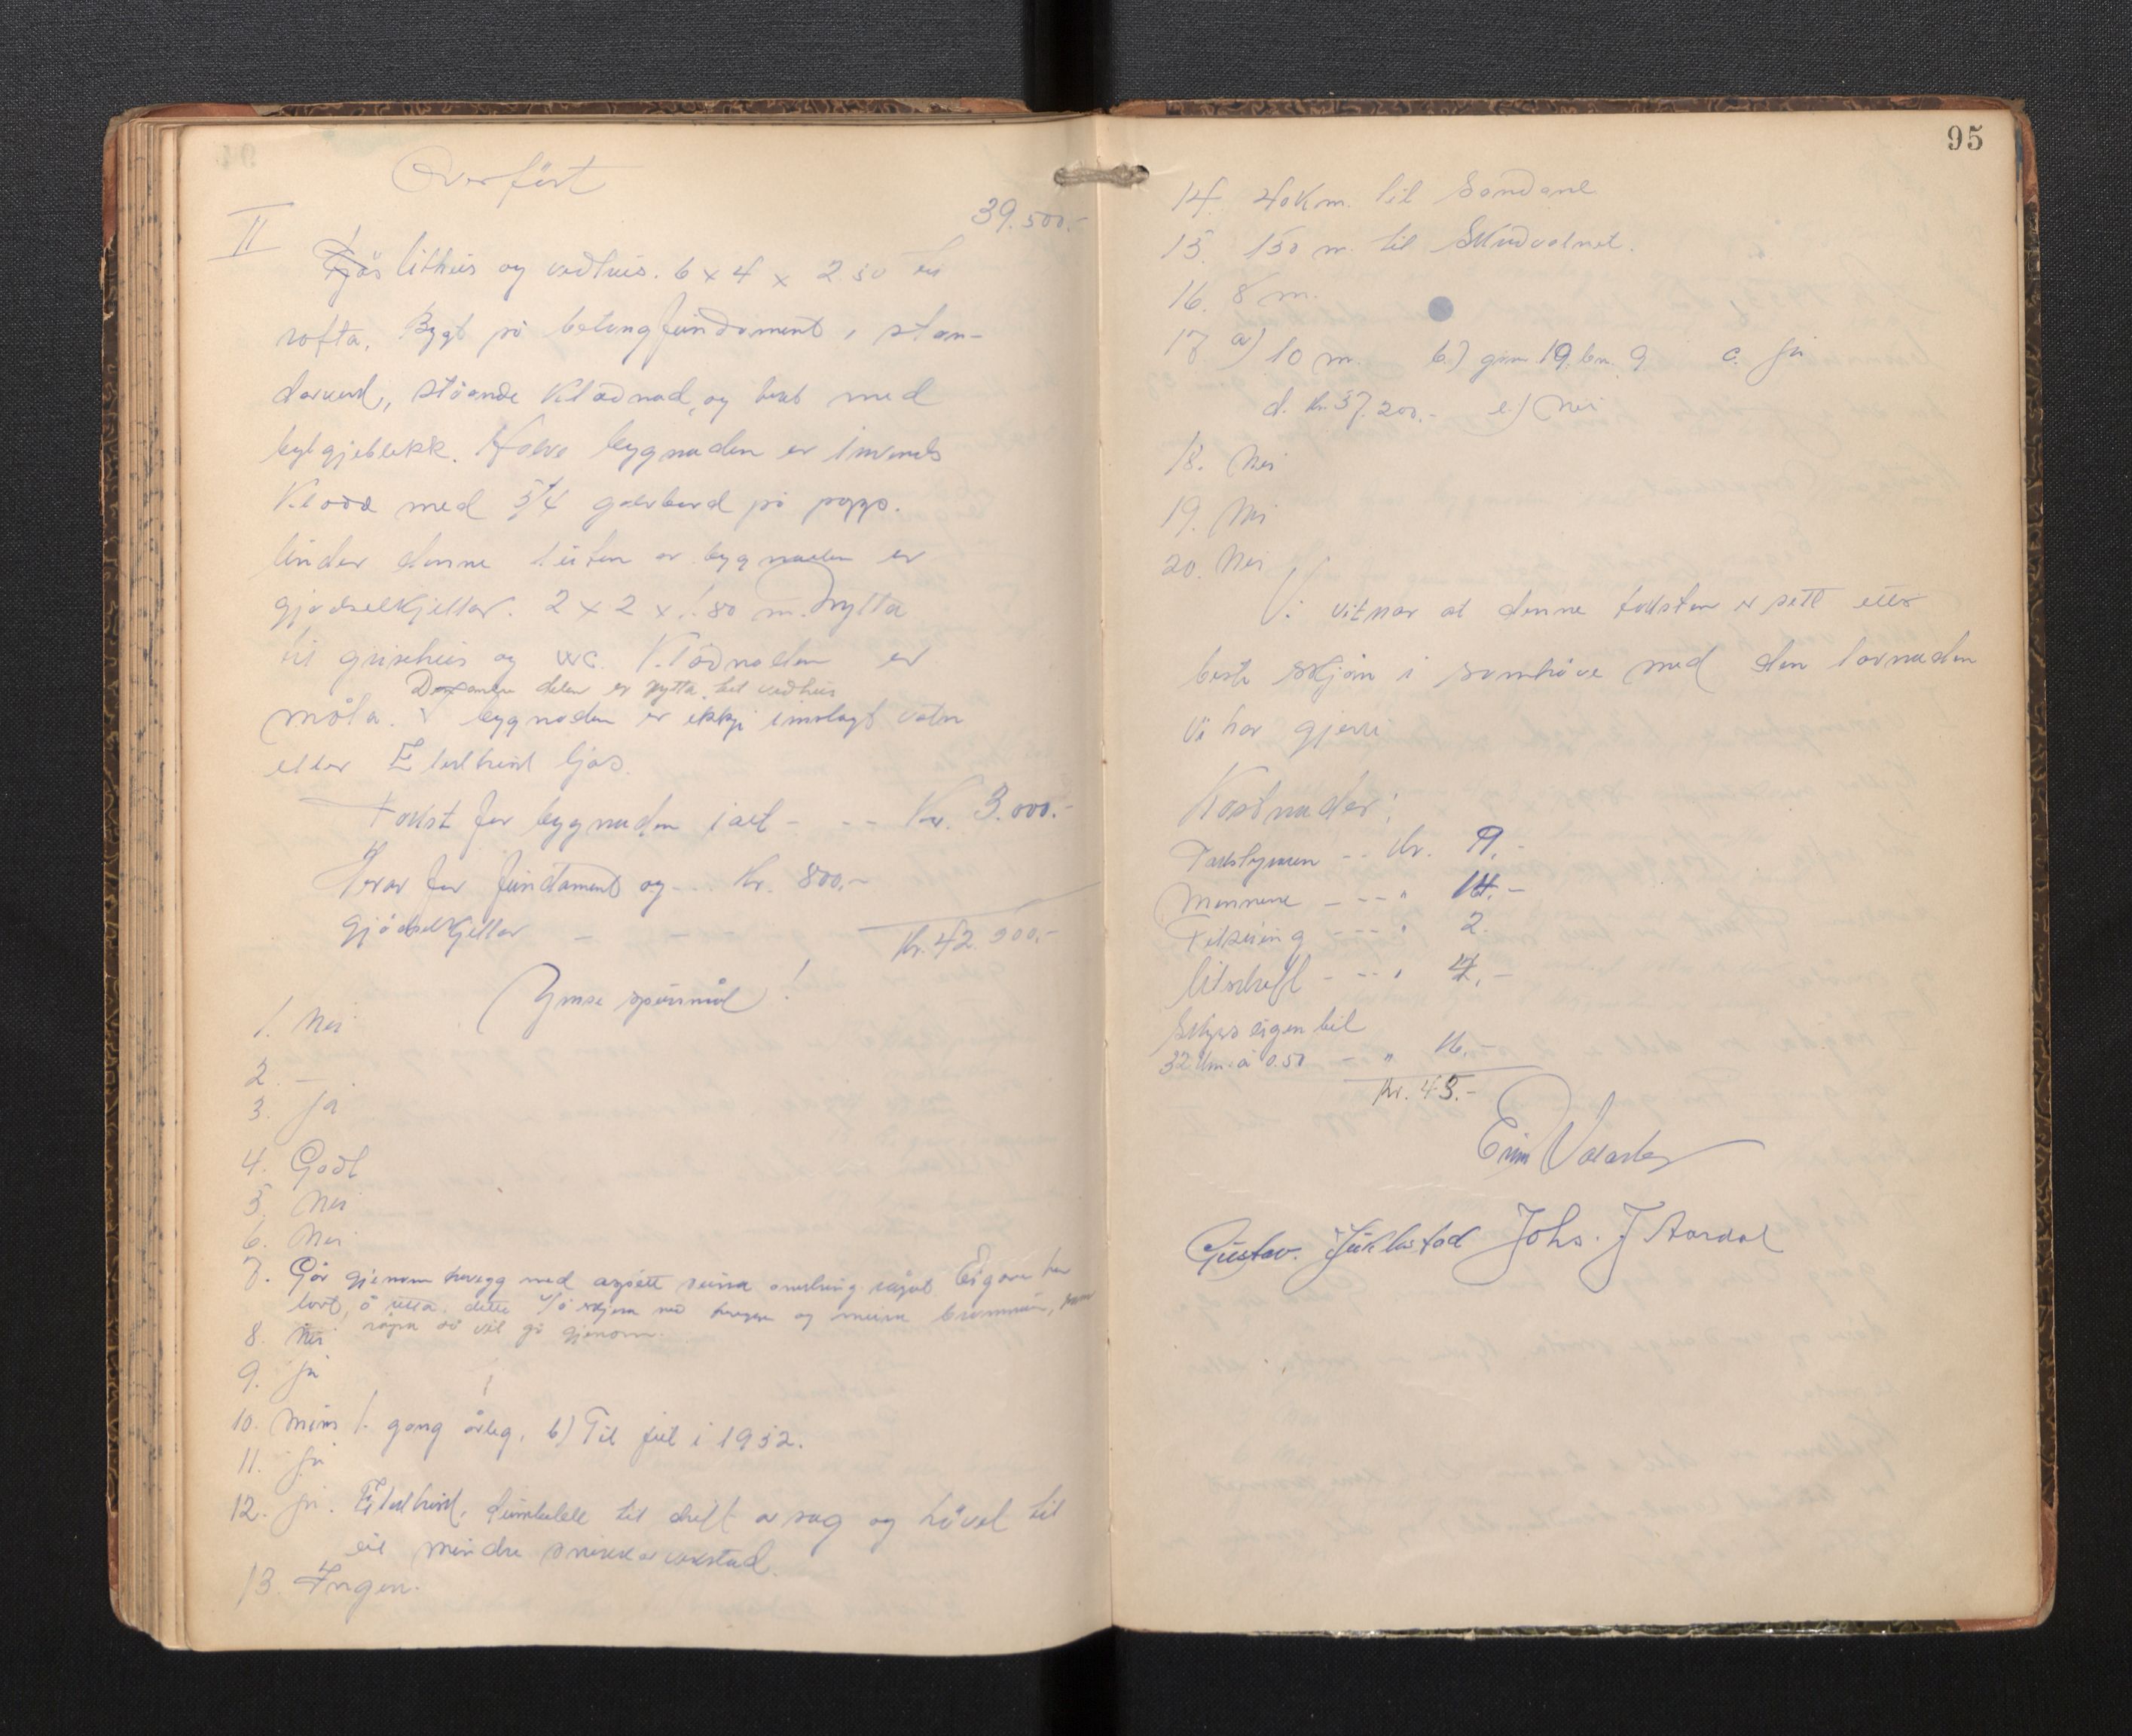 Overført
39.500.-
II
Fjøs Uthus og vedhus. 6 x 4 x 2.50 til
rofta. Bygt på betongfundament, i stan-
darverk, ståande klædnad, og tekt med
bylgjeblekk. Halve bygnaden er invends
Klædd med 5/4 golvbord på papp.
Under denne luten av bygnaden er
gjødselkjellar. 2 x 2 x 1.80 m. Nytta
til grisehus og WC. Klædnaden er
Den andre delen er nytta til vedhus
måla. I bygnaden er ikkje innlagt vatn
eller Elektrisk ljos.
Takst for bygnaden i alt - - - Kr. 3.000.-
Herav for fundament og - - - Kr. 800,-
gjødselkjellar - - -
Kr. 42.500.-
Ymse spursmål!
1. Nei
2. —
3. Ja
4. Godt
5. Nei
6. Nei
7. Går gjenom trevegg med Eigaren har
lovt, å dette å skjera ned og mura brannmur, som
røpa då vil gå gjenom.
8. Nei
9. Ja
10. Minst 1. gong årleg. b) Til jul i 1952.
11. Ja
12. Ja. Elektrisk, til drift av sag og høvel til
ein mindre snikkarverkstad.
13. Ingen.
95
14. 40 km. til Sandane
15. 150 m. til Skudvatnet.
16. 8 m.
17. a) 10 m. b.) gnr. 19, bnr. 9 c. Ja
d. Kr. 37.200.- e.) Nei
18. Nei
19. Nei
20. Nei
Vi vitnar at denne taksten er sett etter
beste skjøn i samhøve med den lovnaden
Vi har gjeve
Kostnader:
Takstlynnen - - Kr. 9.-
Mennene - - - " 14.-
Tilseiing - - - " 2.
Utskrift - - - " 4.-
Skyss eigen bil
32 km. à 0.50 - " 16.-
Kr. 45.-
Gustav. Johs. J Aardal